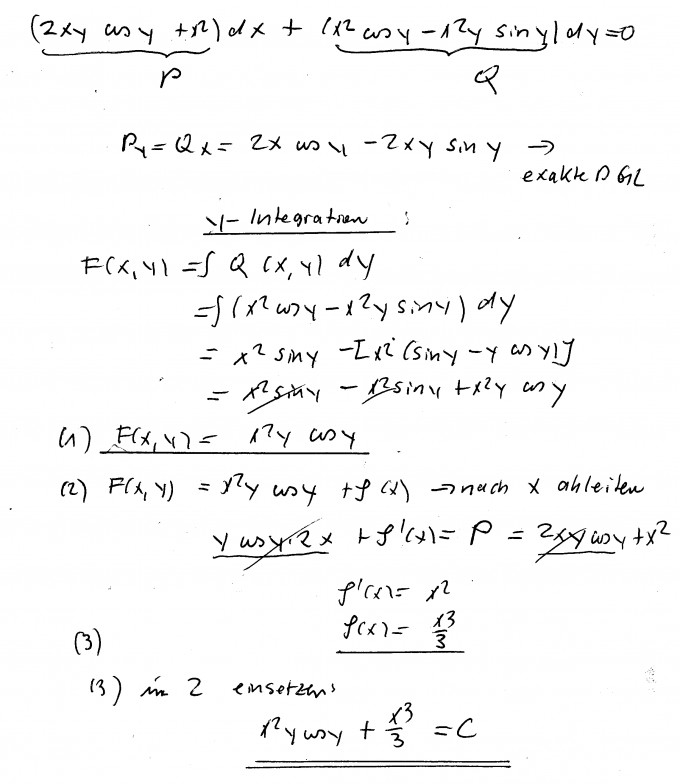 (2xy cos y + x²) dx + (x² cos y - x²y sin y) dy = 0
P Q
Py = Qx = 2x cos y - 2xy sin y →
exakte DGL
y-Integration :
F(x,y) = ∫ Q (x,y) dy
= ∫ (x² cos y - x²y sin y) dy
= x² sin y - [x² (sin y - y cos y)]
= x² sin y - x² sin y + x²y cos y
(1) F(x,y) = x²y cos y
(2) F(x,y) = x²y cos y + f(x) → nach x ableiten
y cos y · 2x + f'(x) = P = 2xy cos y + x²
f'(x) = x²
(3) f(x) = x³/3
(3) in 2 einsetzen:
x²y cos y + x³/3 = C